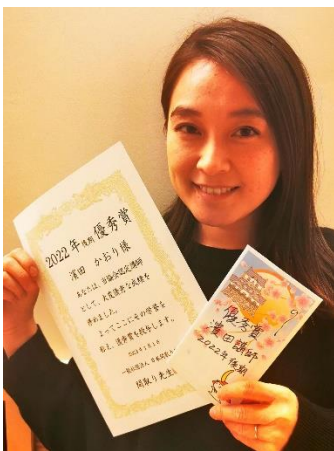 2022年後期 優秀賞
濱田 かおり様
あなたは、当協会認定講師
として、大変優秀な成績を
修めました。
よってここにその栄誉を
称え、優秀賞を授与します。
一般社団法人 日本間取り
間取り先生
優秀賞
濱田講師
2022年後期